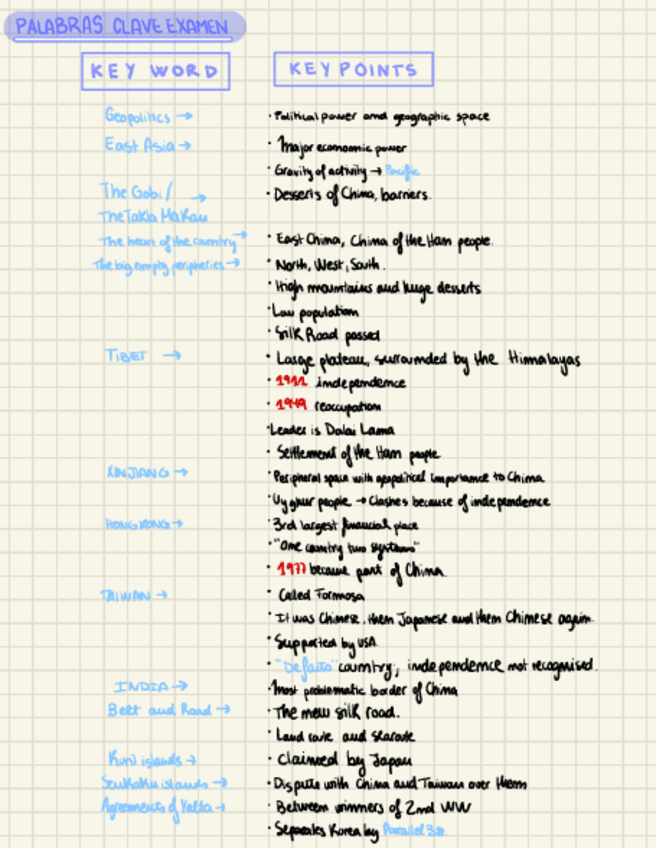 PALABRAS CLAVE EXAMEN
KEY WORD KEY POINTS
Geopolitics → · Political power and geographic space
East Asia → · Major economic power
· Gravity of activity → Pacific
The Gobi / → · Desserts of China, barriers.
The Takla Makan
The heart of the country → · East China, China of the Ham people.
The big empty peripheries → · North, West, South.
· High mountains and huge desserts
· Low population
· Silk Road passed
TIBET → · Large plateau, surrounded by the Himmalayas
· independence
· 1949 reoccupation
· Leader is Dalai Lama
· Settlement of the Ham people
XINJIANG → · Peripheral space with geopolitical importance to China
· Uyghur people → Clashes because of independence
HONG KONG → · 3rd largest financial place
· "One country two systems"
· 1977 became part of China
TAIWAN → · Called Formosa
· It was Chinese, then Japanese and then Chinese again.
· Supported by USA
· "Defaito" country, independence not recognised.
INDIA → · Most problematic border of China
Belt and Road → · The new silk road.
· Land route and searoute
Kuril islands → · Claimed by Japan
Senkaku islands → · Dispute with China and Taiwan over them
Agreements of Yalta → · Between winners of 2nd WW
· Separates Korea by Parallel 38.